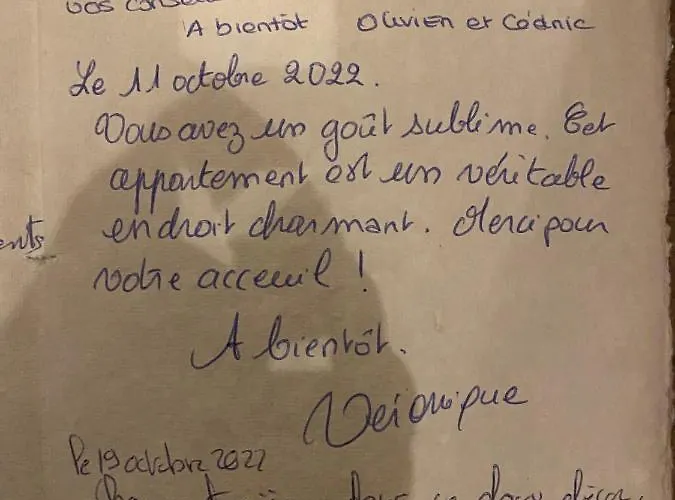 vos conse
A bientôt Olivier et Cédric
Le 11 octobre 2022.
Vous avez un goût sublime. Cet
appartement est un véritable
ents
endroit charmant. Merci pour
votre acceuil !
A bientôt.
Véronique
Le 19 octobre 2022